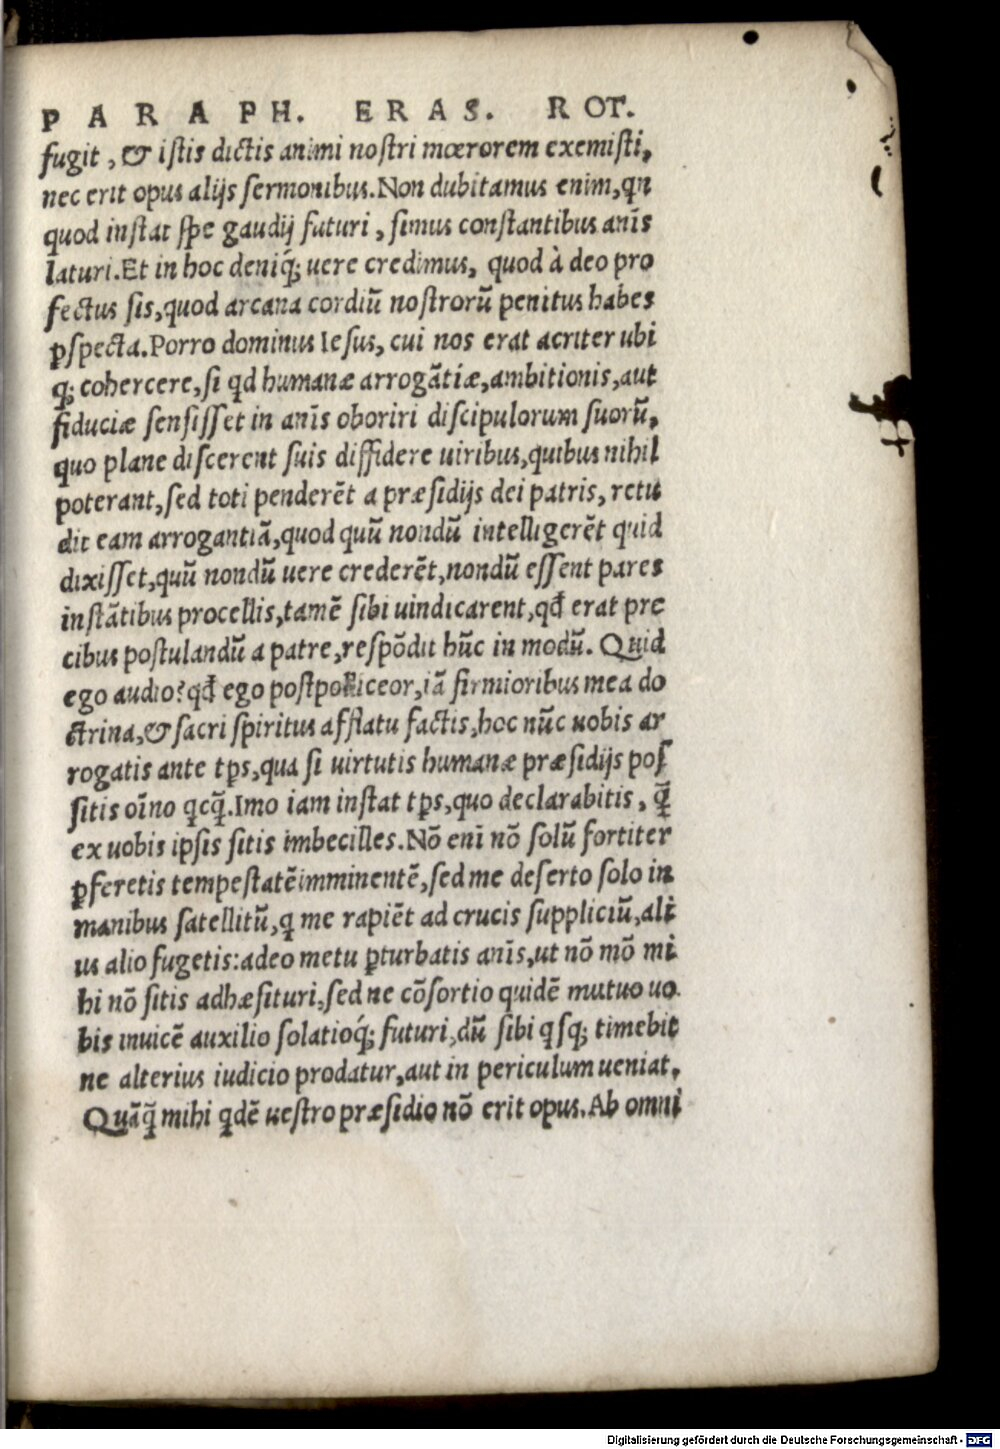 PARAPH. ERAS. ROT.
fugit, & istis dictis animi nostri mœrorem exemisti,
nec erit opus alijs sermonibus. Non dubitamus enim, qn
quod instat spe gaudij futuri, simus constantibus anīs
laturi. Et in hoc deniq́; uere credimus, quod à deo pro
fectus sis, quod arcana cordiū nostrorū penitus habes
ꝑspecta. Porro dominus Iesus, cui nos erat acriter ubi
q; cohercere, si qd humanæ arrogātiæ, ambitionis, aut
fiduciæ sensisset in anīs oboriri discipulorum suorū,
quo plane discerent suis diffidere uiribus, quibus nihil
poterant, sed toti penderēt a præsidijs dei patris, retu
dit eam arrogantiā, quod quū nondū intelligerēt quid
dixisset, quū nondū uere crederēt, nondū essent pares
instātibus procellis, tamē sibi uindicarent, qđ erat pre
cibus postulandū a patre, respōdit hūc in modū. Quid
ego audio? qđ ego postpolliceor, iā firmioribus mea do
ctrina, & sacri spiritus afflatu factis, hoc nūc uobis ar
rogatis ante tꝑs, qua si uirtutis humanæ præsidijs pos
sitis oīno qcq̄. Imo iam instat tꝑs, quo declarabitis, q̄
ex uobis ipsis sitis imbecilles. Nō enī nō solū fortiter
ꝑferetis tempestatē imminentē, sed me deserto solo in
manibus satellitū, q me rapiēt ad crucis suppliciū, ali
us alio fugetis: adeo metu ꝑturbatis anīs, ut nō mō mi
hi nō sitis adhæsituri, sed ne cōsortio quidē mutuo uo
bis inuicē auxilio solatioq́; futuri, dū sibi qsq; timebit
ne alterius iudicio prodatur, aut in periculum ueniat.
Quāq̄ mihi qdē uestro præsidio nō erit opus. Ab omni
Digitalisierung gefördert durch die Deutsche Forschungsgemeinschaft - DFG